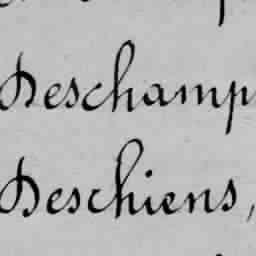 Deschamp
Deschiens,